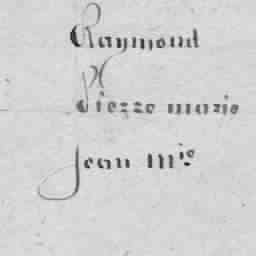 Raymond
Pierre marie
Jean M^ie